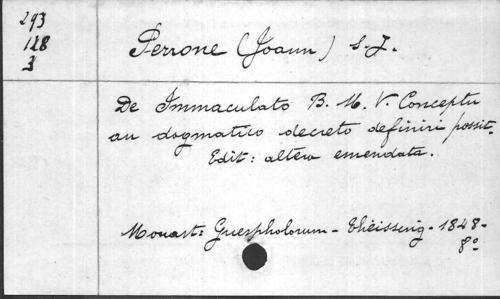 293
128
3
Perrone (Joann) S.J.
De Immaculato B. M. V. Conceptu
an dogmatico decreto definiri possit.
Edit: altera emendata.
Monast: Guespholorum - Theissing - 1848 -
8°